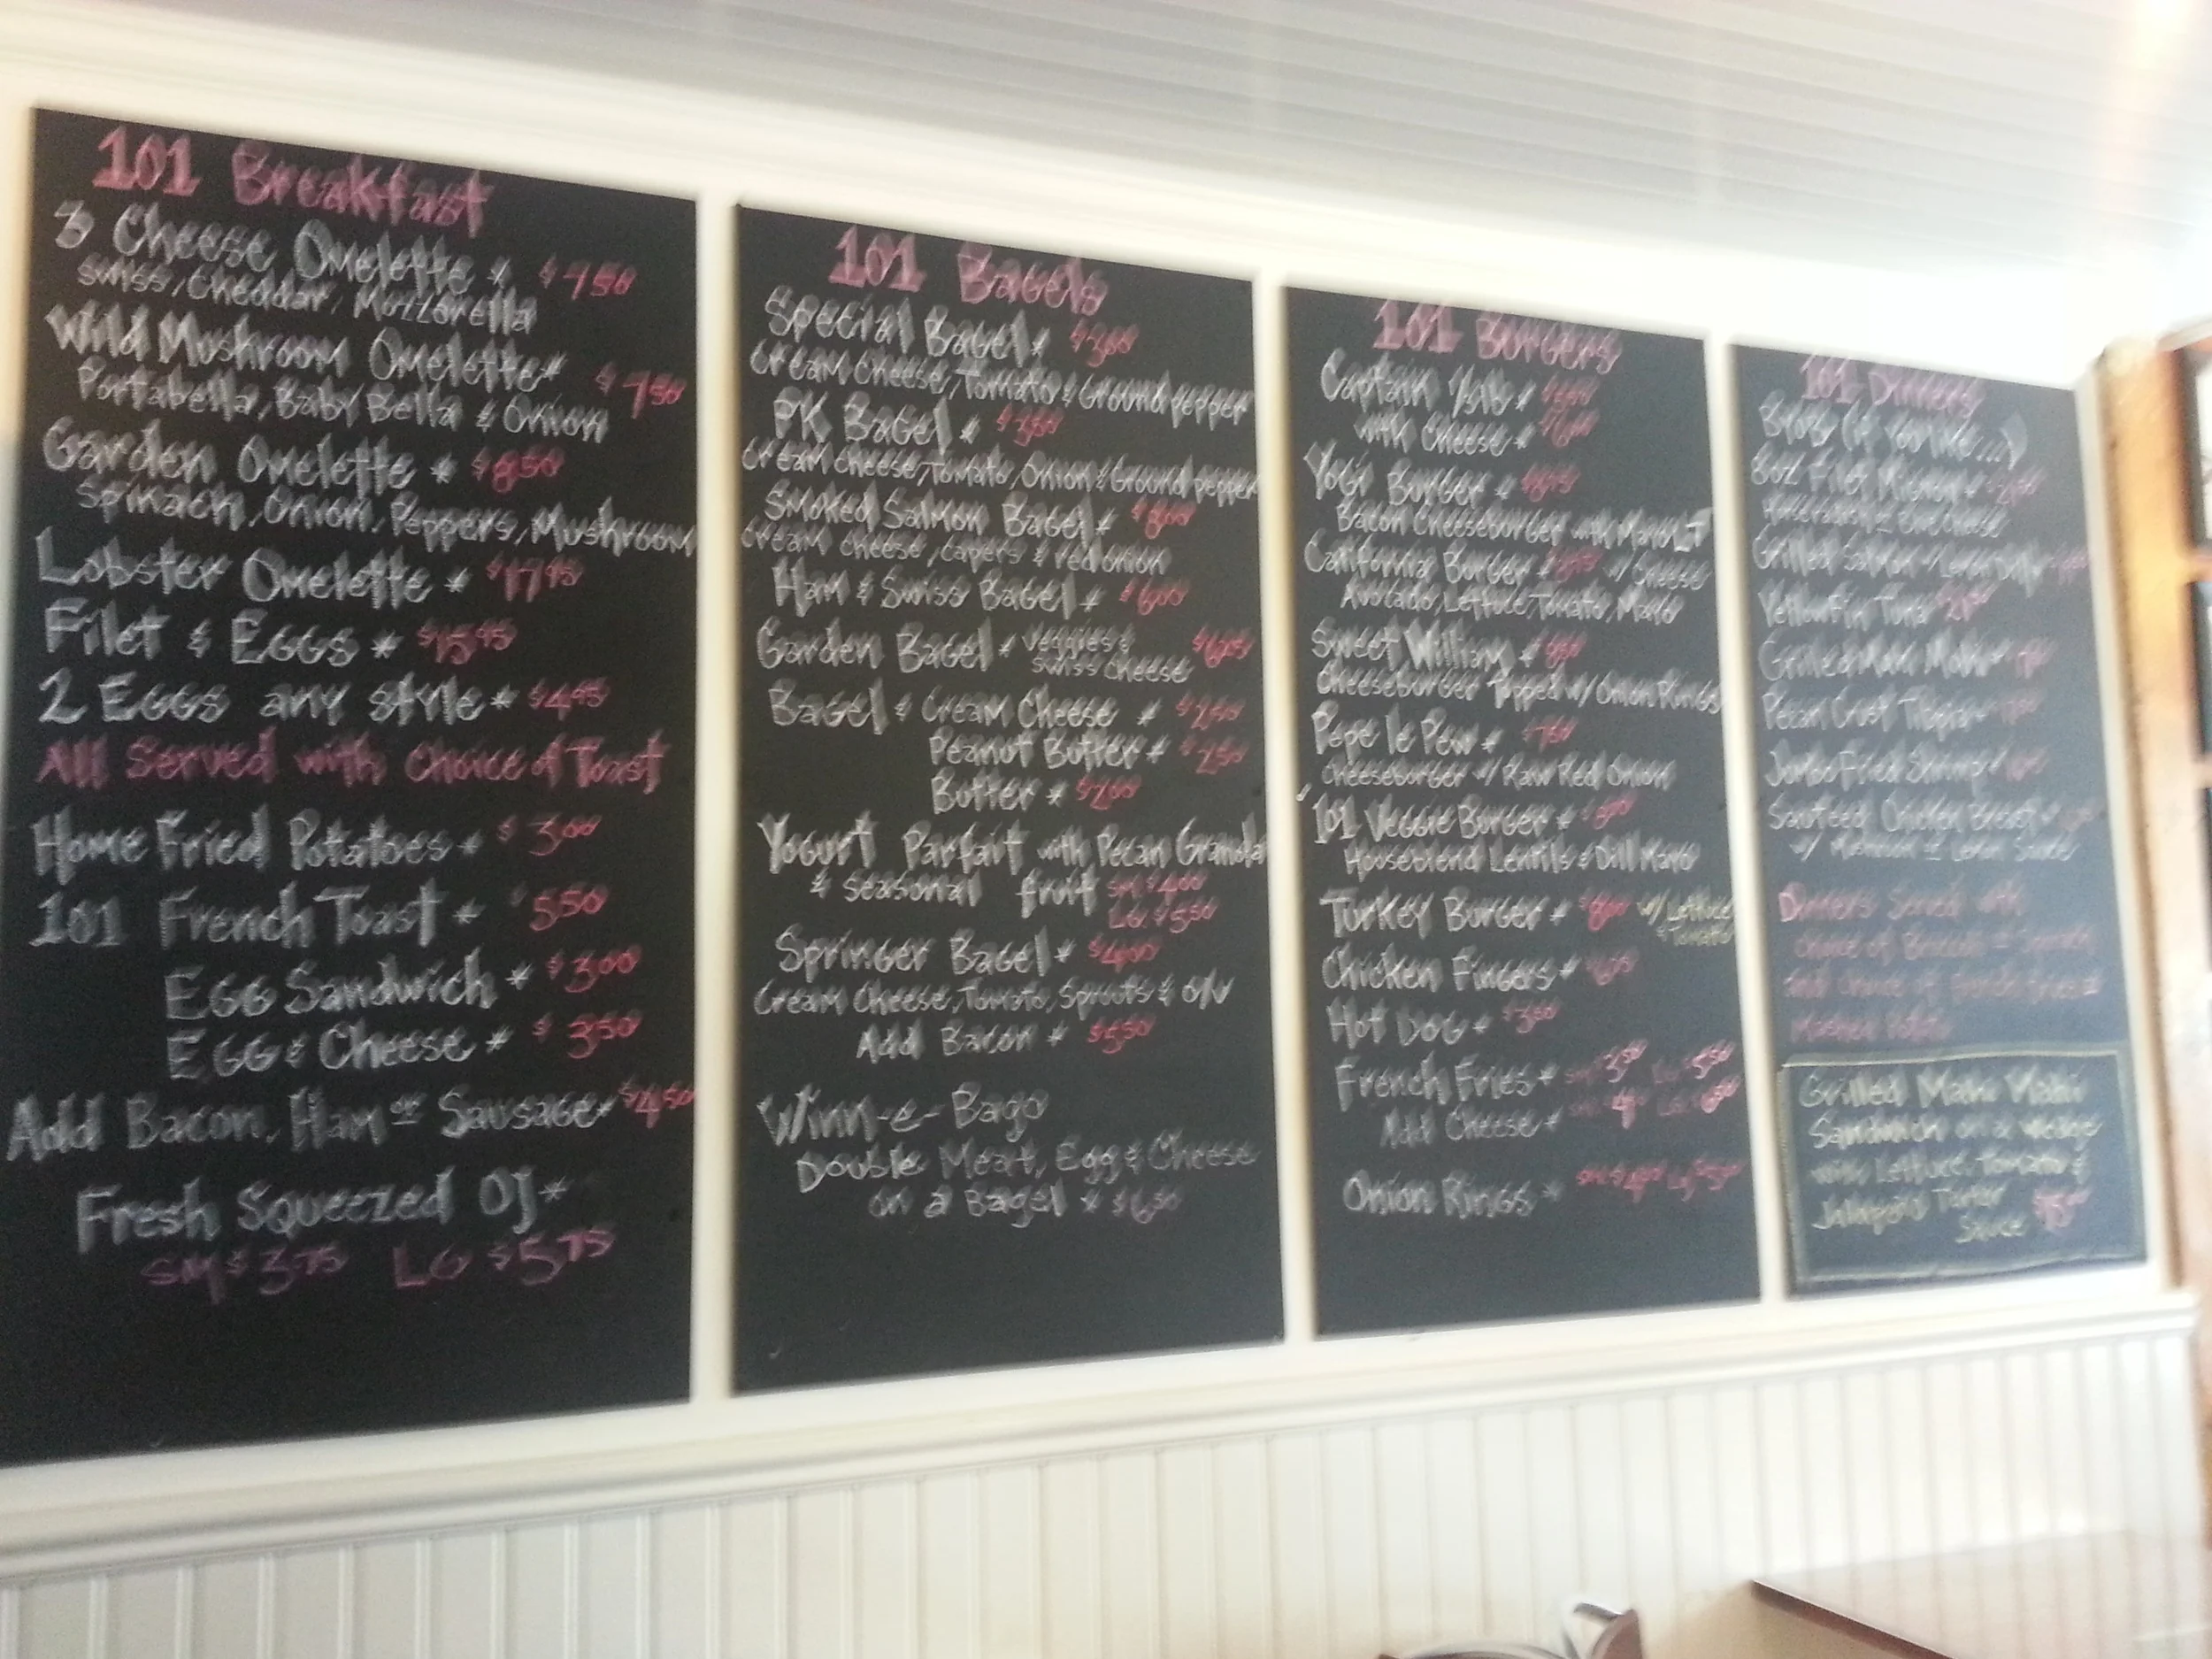 101 Breakfast
3 Cheese Omelette * $7.50
Swiss, Cheddar, Mozzarella
Wild Mushroom Omelette * $7.50
Portabella, Baby Bella & Onion
Garden Omelette * $8.50
Spinach, Onion, Peppers, Mushroom
Lobster Omelette * $17.95
Filet & Eggs * $15.95
2 Eggs any style * $4.95
All Served with Choice of Toast
Home Fried Potatoes * $3.00
101 French Toast * $5.50
Egg Sandwich * $3.00
Egg & Cheese * $3.50
Add Bacon, Ham or Sausage * $4.50
Fresh Squeezed OJ *
SM $3.75 LG $5.75
101 Bagels
Special Bagel * $3.00
Cream Cheese, Tomato & Ground pepper
PK Bagel *
Cream Cheese, Tomato, Onion & Ground pepper
Smoked Salmon Bagel * $8.00
Cream Cheese, Capers & red onion
Ham & Swiss Bagel * $6.00
Garden Bagel * Veggies &
Swiss Cheese
Bagel & Cream Cheese *
Peanut Butter * $2.50
Butter * $2.00
Yogurt Parfait with Pecan Granola
& Seasonal fruit SM $4.00
LG $5.50
Springer Bagel * $4.00
Cream Cheese, Tomato, Sprouts & O/V
Add Bacon * $5.50
Winn-e-Bago
Double Meat, Egg & Cheese
on a Bagel *
101 Burgers
Captain *
with Cheese *
Yogi Burger *
Bacon Cheeseburger with Mayo LT
California Burger * w/ Cheese
Avocado, Lettuce, Tomato, Mayo
Sweet William *
Cheeseburger Topped w/ Onion Rings
Pepe le Pew *
Cheeseburger w/ Raw Red Onion
101 Veggie Burger *
Houseblend Lentils & Dill Mayo
Turkey Burger * $8.00 w/ Lettuce
& Tomato
Chicken Fingers *
Hot Dog *
French Fries *
Add Cheese *
Onion Rings *
101 Dinners
BYOB (if you like...)
8oz Filet Mignon *
Grilled Salmon w/ Lemon
Yellowfin Tuna
Grilled Mahi Mahi
Pecan Crust Tilapia
Jumbo Fried Shrimp
Sauteed Chicken Breast
w/ Mushroom or Lemon Sauce
Dinners Served with
Choice of Broccoli or
and choice of
Mashed
Grilled Mahi Mahi
Sandwich on a wedge
with Lettuce, Tomato &
Jalapeño Tartar
Sauce